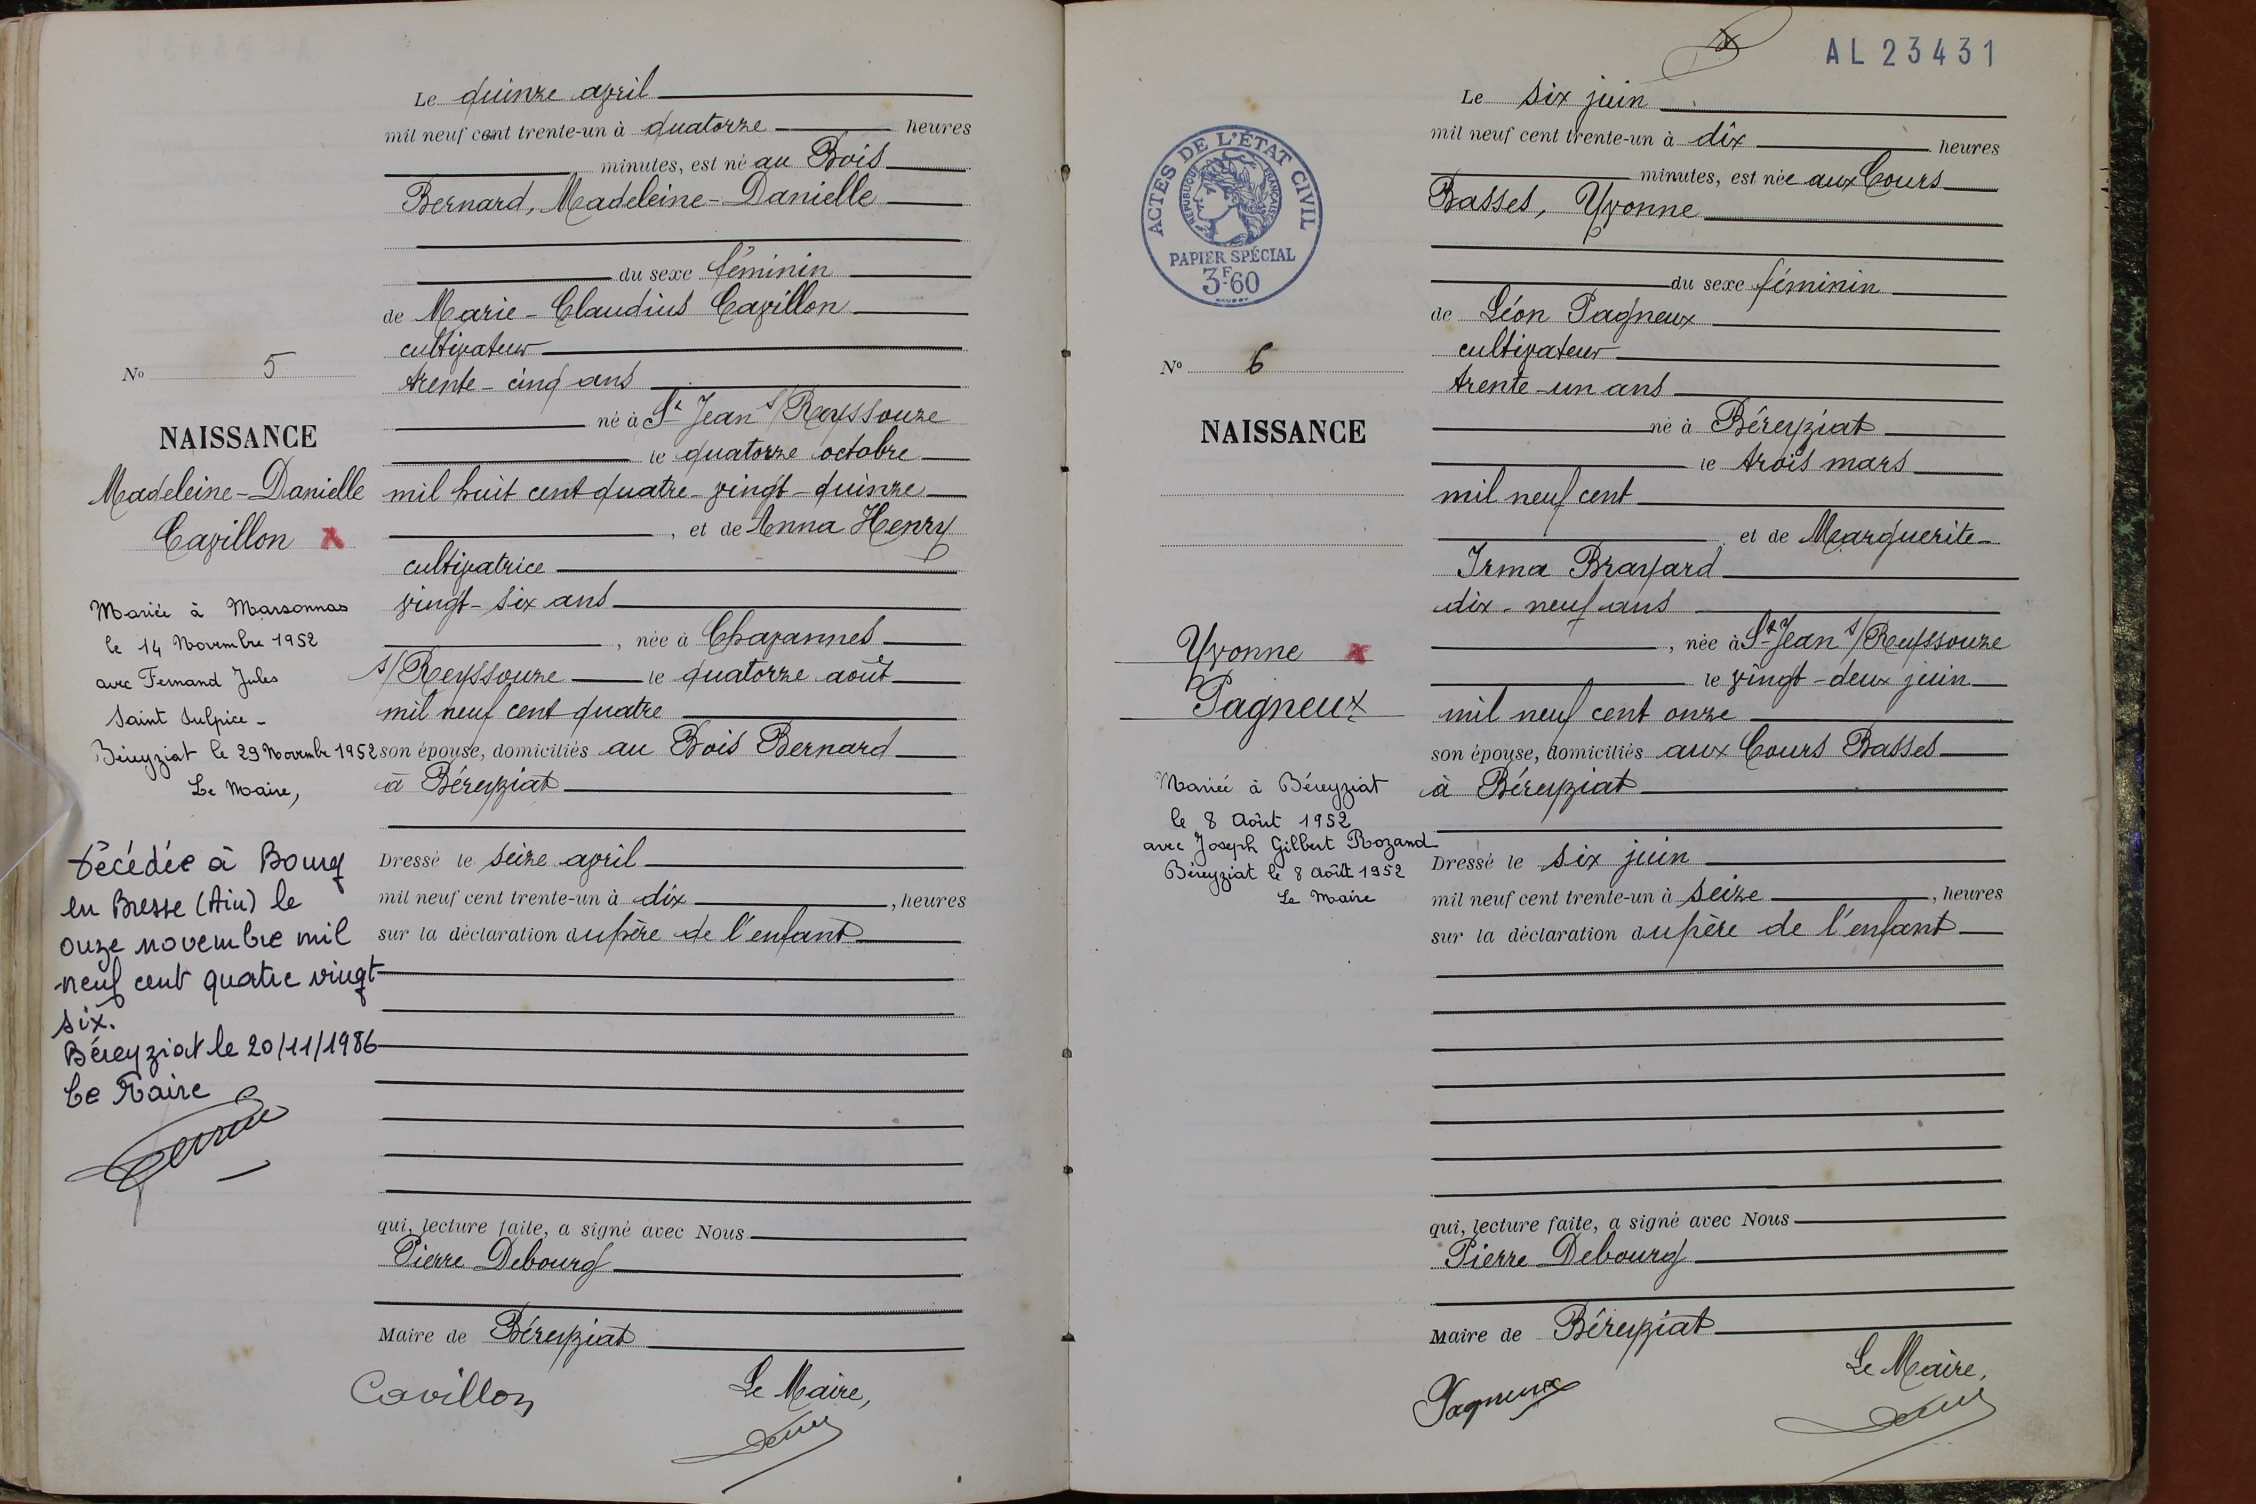 Le quinze avril
mil neuf cent trente-un à quatorze heures
minutes, est né au Bois
Bernard, Madeleine-Danielle
du sexe féminin
de Marie-Claudius Cavillon
cultivateur
trente-cinq ans
né à St Jean s/Reyssouze
le quatorze octobre
mil huit cent quatre-vingt-quinze
, et de Anna Henry
cultivatrice
vingt-six ans
, née à Chavannes
s/Reyssouze le quatorze août
mil neuf cent quatre
son épouse, domiciliés au Bois Bernard
à Béreyziat
Dressé le seize avril
mil neuf cent trente-un à dix , heures
sur la déclaration du père de l'enfant
qui, lecture faite, a signé avec Nous
Pierre Debourg
Maire de Béreyziat
Cavillon
Le Maire,
No 5
NAISSANCE
Madeleine-Danielle
Cavillon X
Mariée à Marsonnas
le 14 Novembre 1952
avec Fernand Jules
Saint Sulpice -
Béreyziat le 29 Novembre 1952
Le Maire,
Décédée à Bourg
en Bresse (Ain) le
onze novembre mil
neuf cent quatre vingt
six.
Béreyziat le 20/11/1986
Le Maire
AL 23431
ACTES DE L'ÉTAT CIVIL
RÉPUBLIQUE FRANÇAISE
PAPIER SPÉCIAL
3F60
No 6
NAISSANCE
Yvonne X
Pagneux
Mariée à Béreyziat
le 8 Août 1952
avec Joseph Gilbert Rozand
Béreyziat le 8 Août 1952
Le Maire
Le six juin
mil neuf cent trente-un à dix heures
minutes, est née aux Cours
Basses, Yvonne
du sexe féminin
de Léon Pagneux
cultivateur
trente-un ans
né à Béreyziat
le trois mars
mil neuf cent
et de Marguerite-
Irma Brayard
dix-neuf ans
, née à St Jean s/Reyssouze
le vingt-deux juin
mil neuf cent onze
son épouse, domiciliés aux Cours Basses
à Béreyziat
Dressé le six juin
mil neuf cent trente-un à seize , heures
sur la déclaration du père de l'enfant
qui, lecture faite, a signé avec Nous
Pierre Debourg
Maire de Béreyziat
Pagneux
Le Maire,